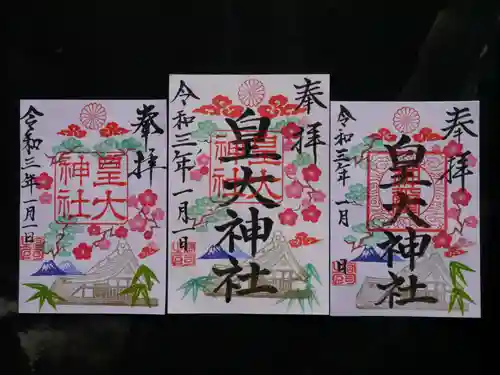 奉拝
皇大
神社
令和三年一月一日
奉拝
皇大神社
令和三年一月一日
奉拝
皇大神社
令和三年
一月
日